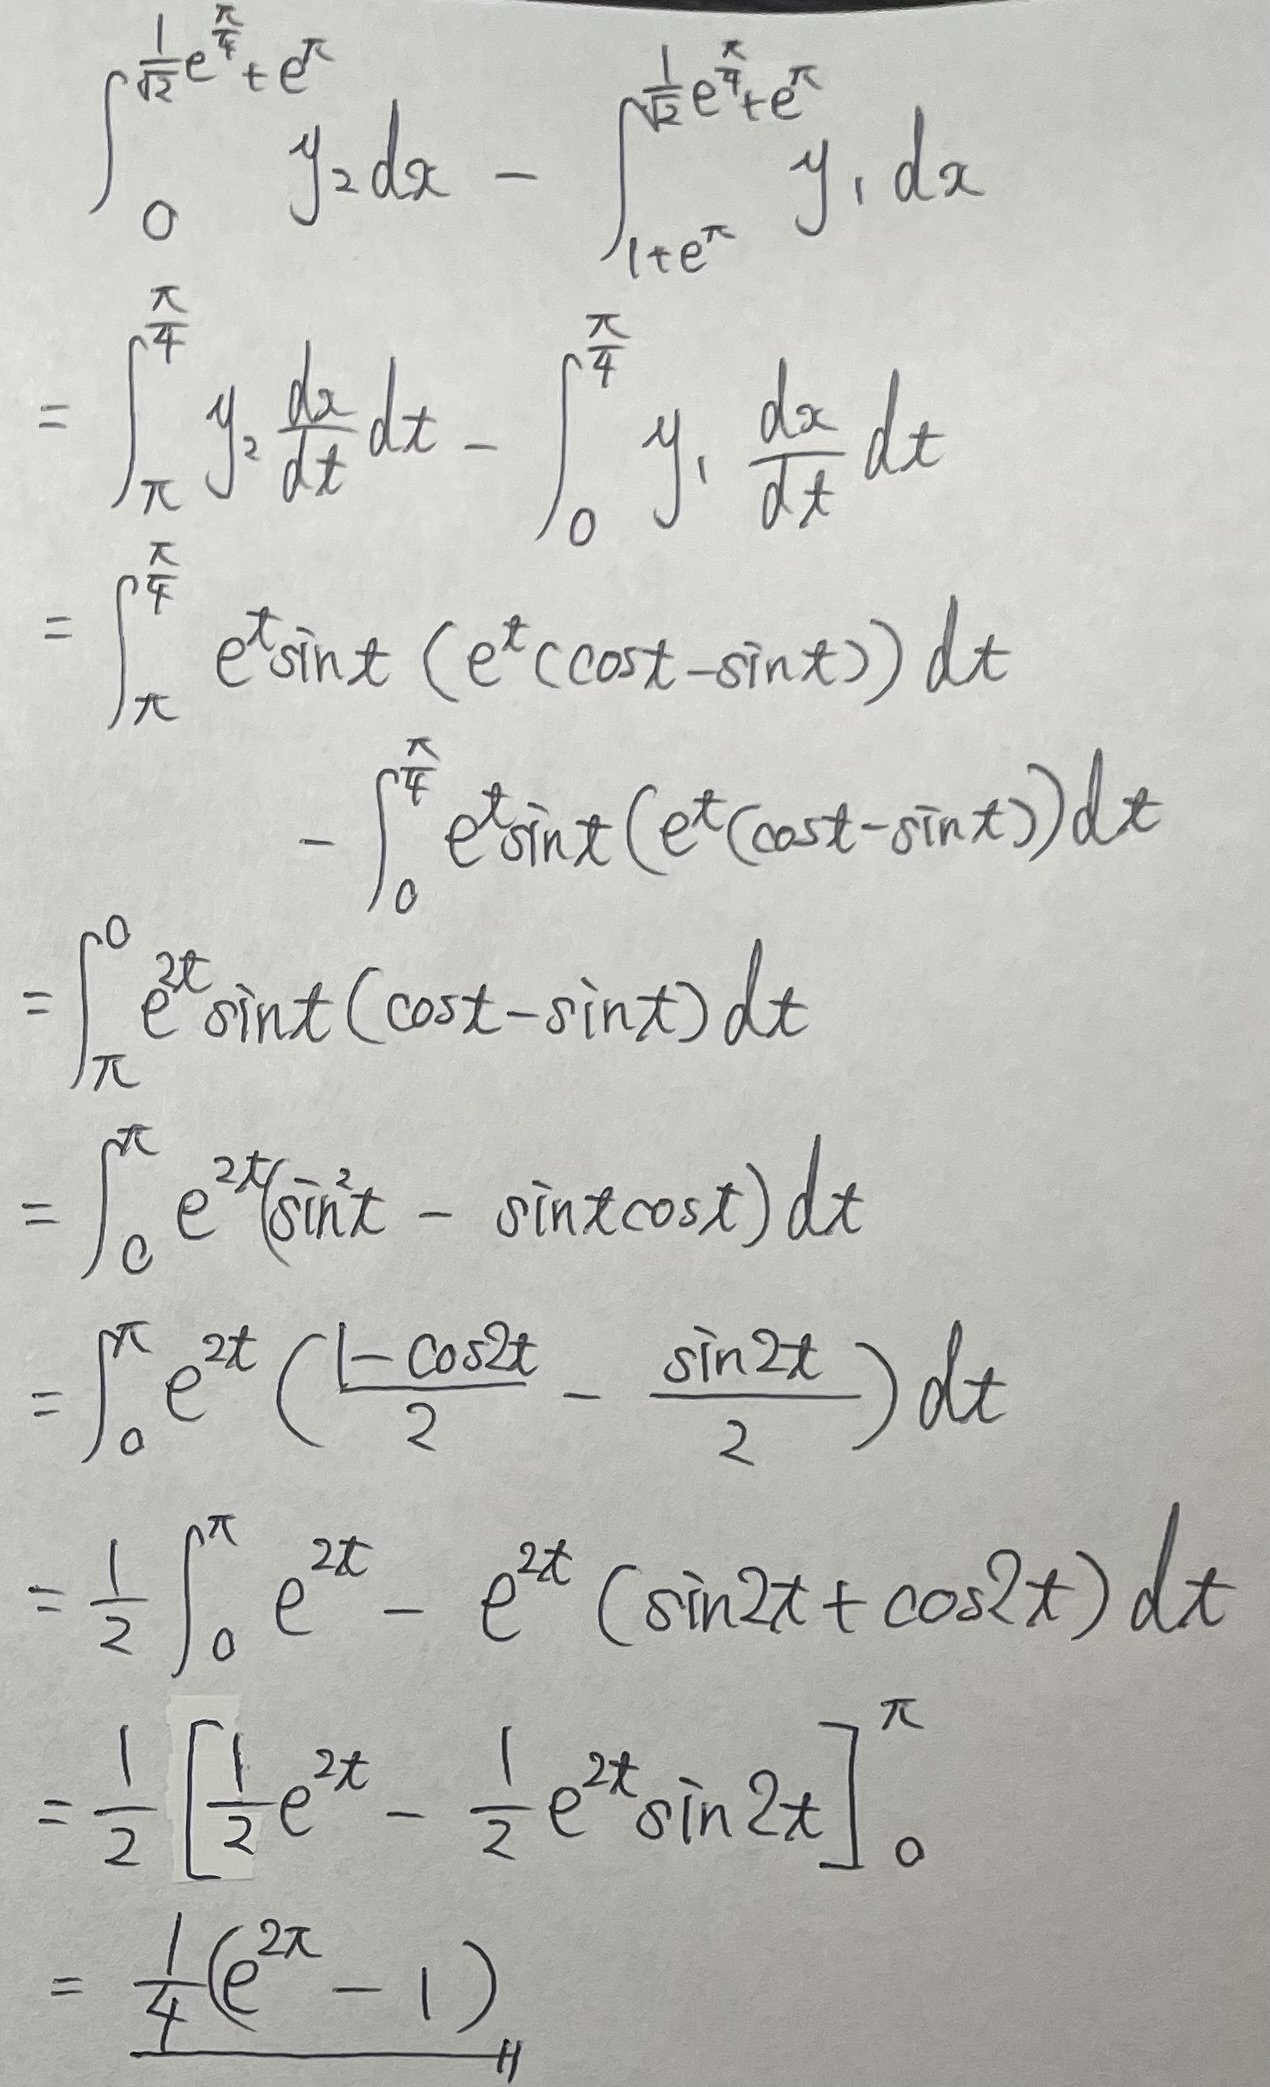 ∫_0^{\frac{1}{√2}e^{\frac{π}{4}}+e^π} y_2 dx - ∫_{1+e^π}^{\frac{1}{√2}e^{\frac{π}{4}}+e^π} y_1 dx
= ∫_π^{\frac{π}{4}} y_2 \frac{dx}{dt} dt - ∫_0^{\frac{π}{4}} y_1 \frac{dx}{dt} dt
= ∫_π^{\frac{π}{4}} e^t sint (e^t(cost-sint)) dt
- ∫_0^{\frac{π}{4}} e^t sint (e^t(cost-sint)) dt
= ∫_π^0 e^{2t} sint (cost-sint) dt
= ∫_0^π e^{2t} (sin^2t - sintcost) dt
= ∫_0^π e^{2t} (\frac{1-cos2t}{2} - \frac{sin2t}{2}) dt
= \frac{1}{2} ∫_0^π e^{2t} - e^{2t} (sin2t+cos2t) dt
= \frac{1}{2} [\frac{1}{2}e^{2t} - \frac{1}{2}e^{2t}sin2t]_0^π
= \frac{1}{4}(e^{2π} - 1)